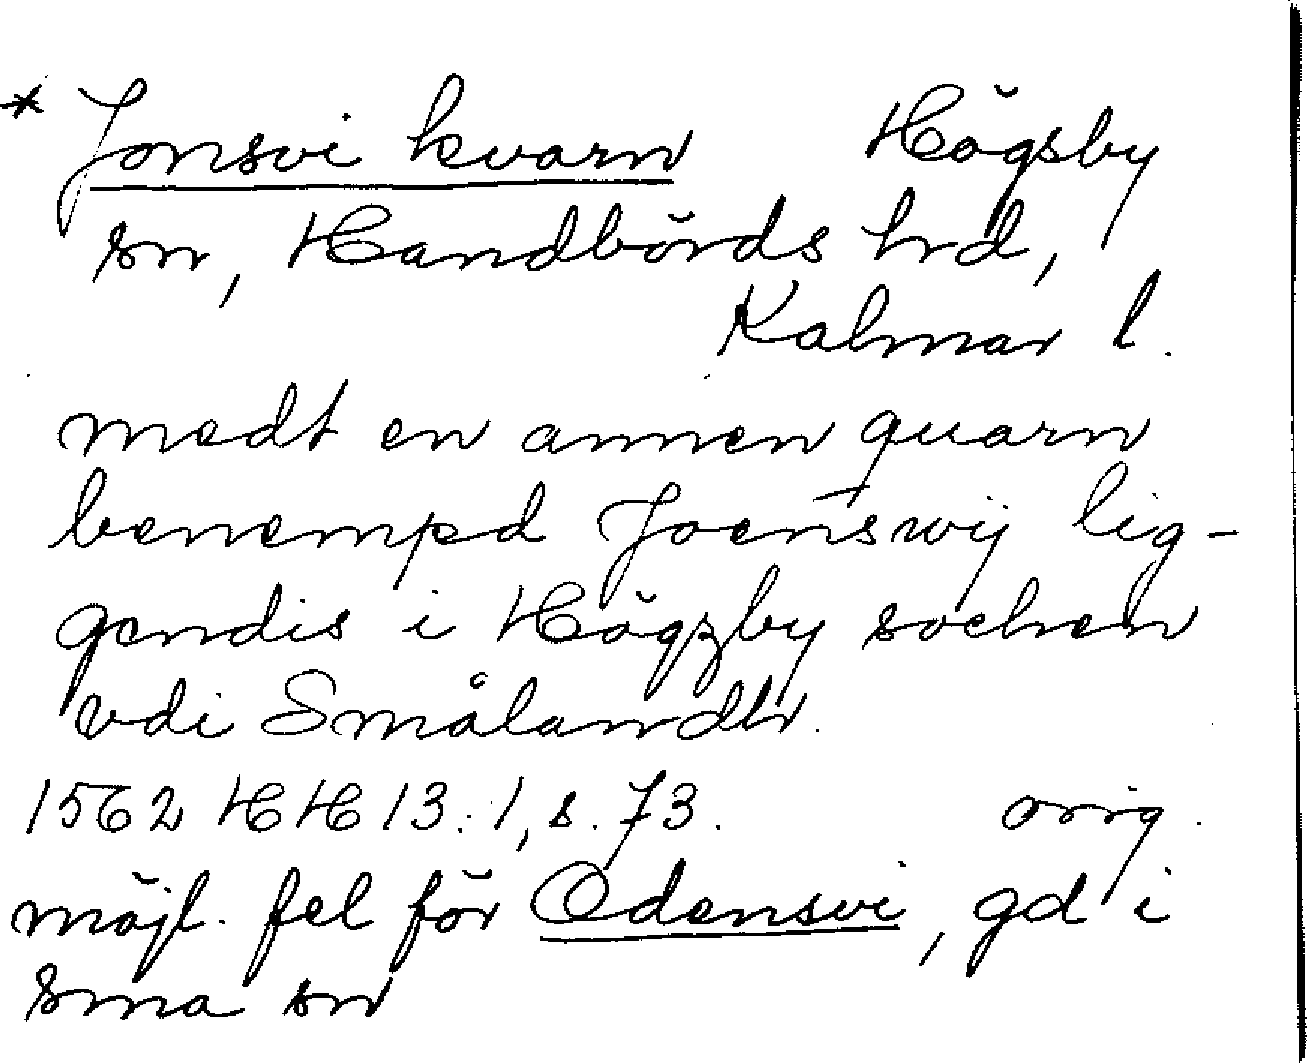 * Jonsvi kvarn Högsby
sn, Handbörds hrd,
Kalmar l.
medt en annen quarn
benempd Joenswij lig-
gendis i Högzby sochen
vdi Smålandh.
1562 HH 13:1, s. 73. orig.
möjl. fel för Odensvi, gd i
sma sn